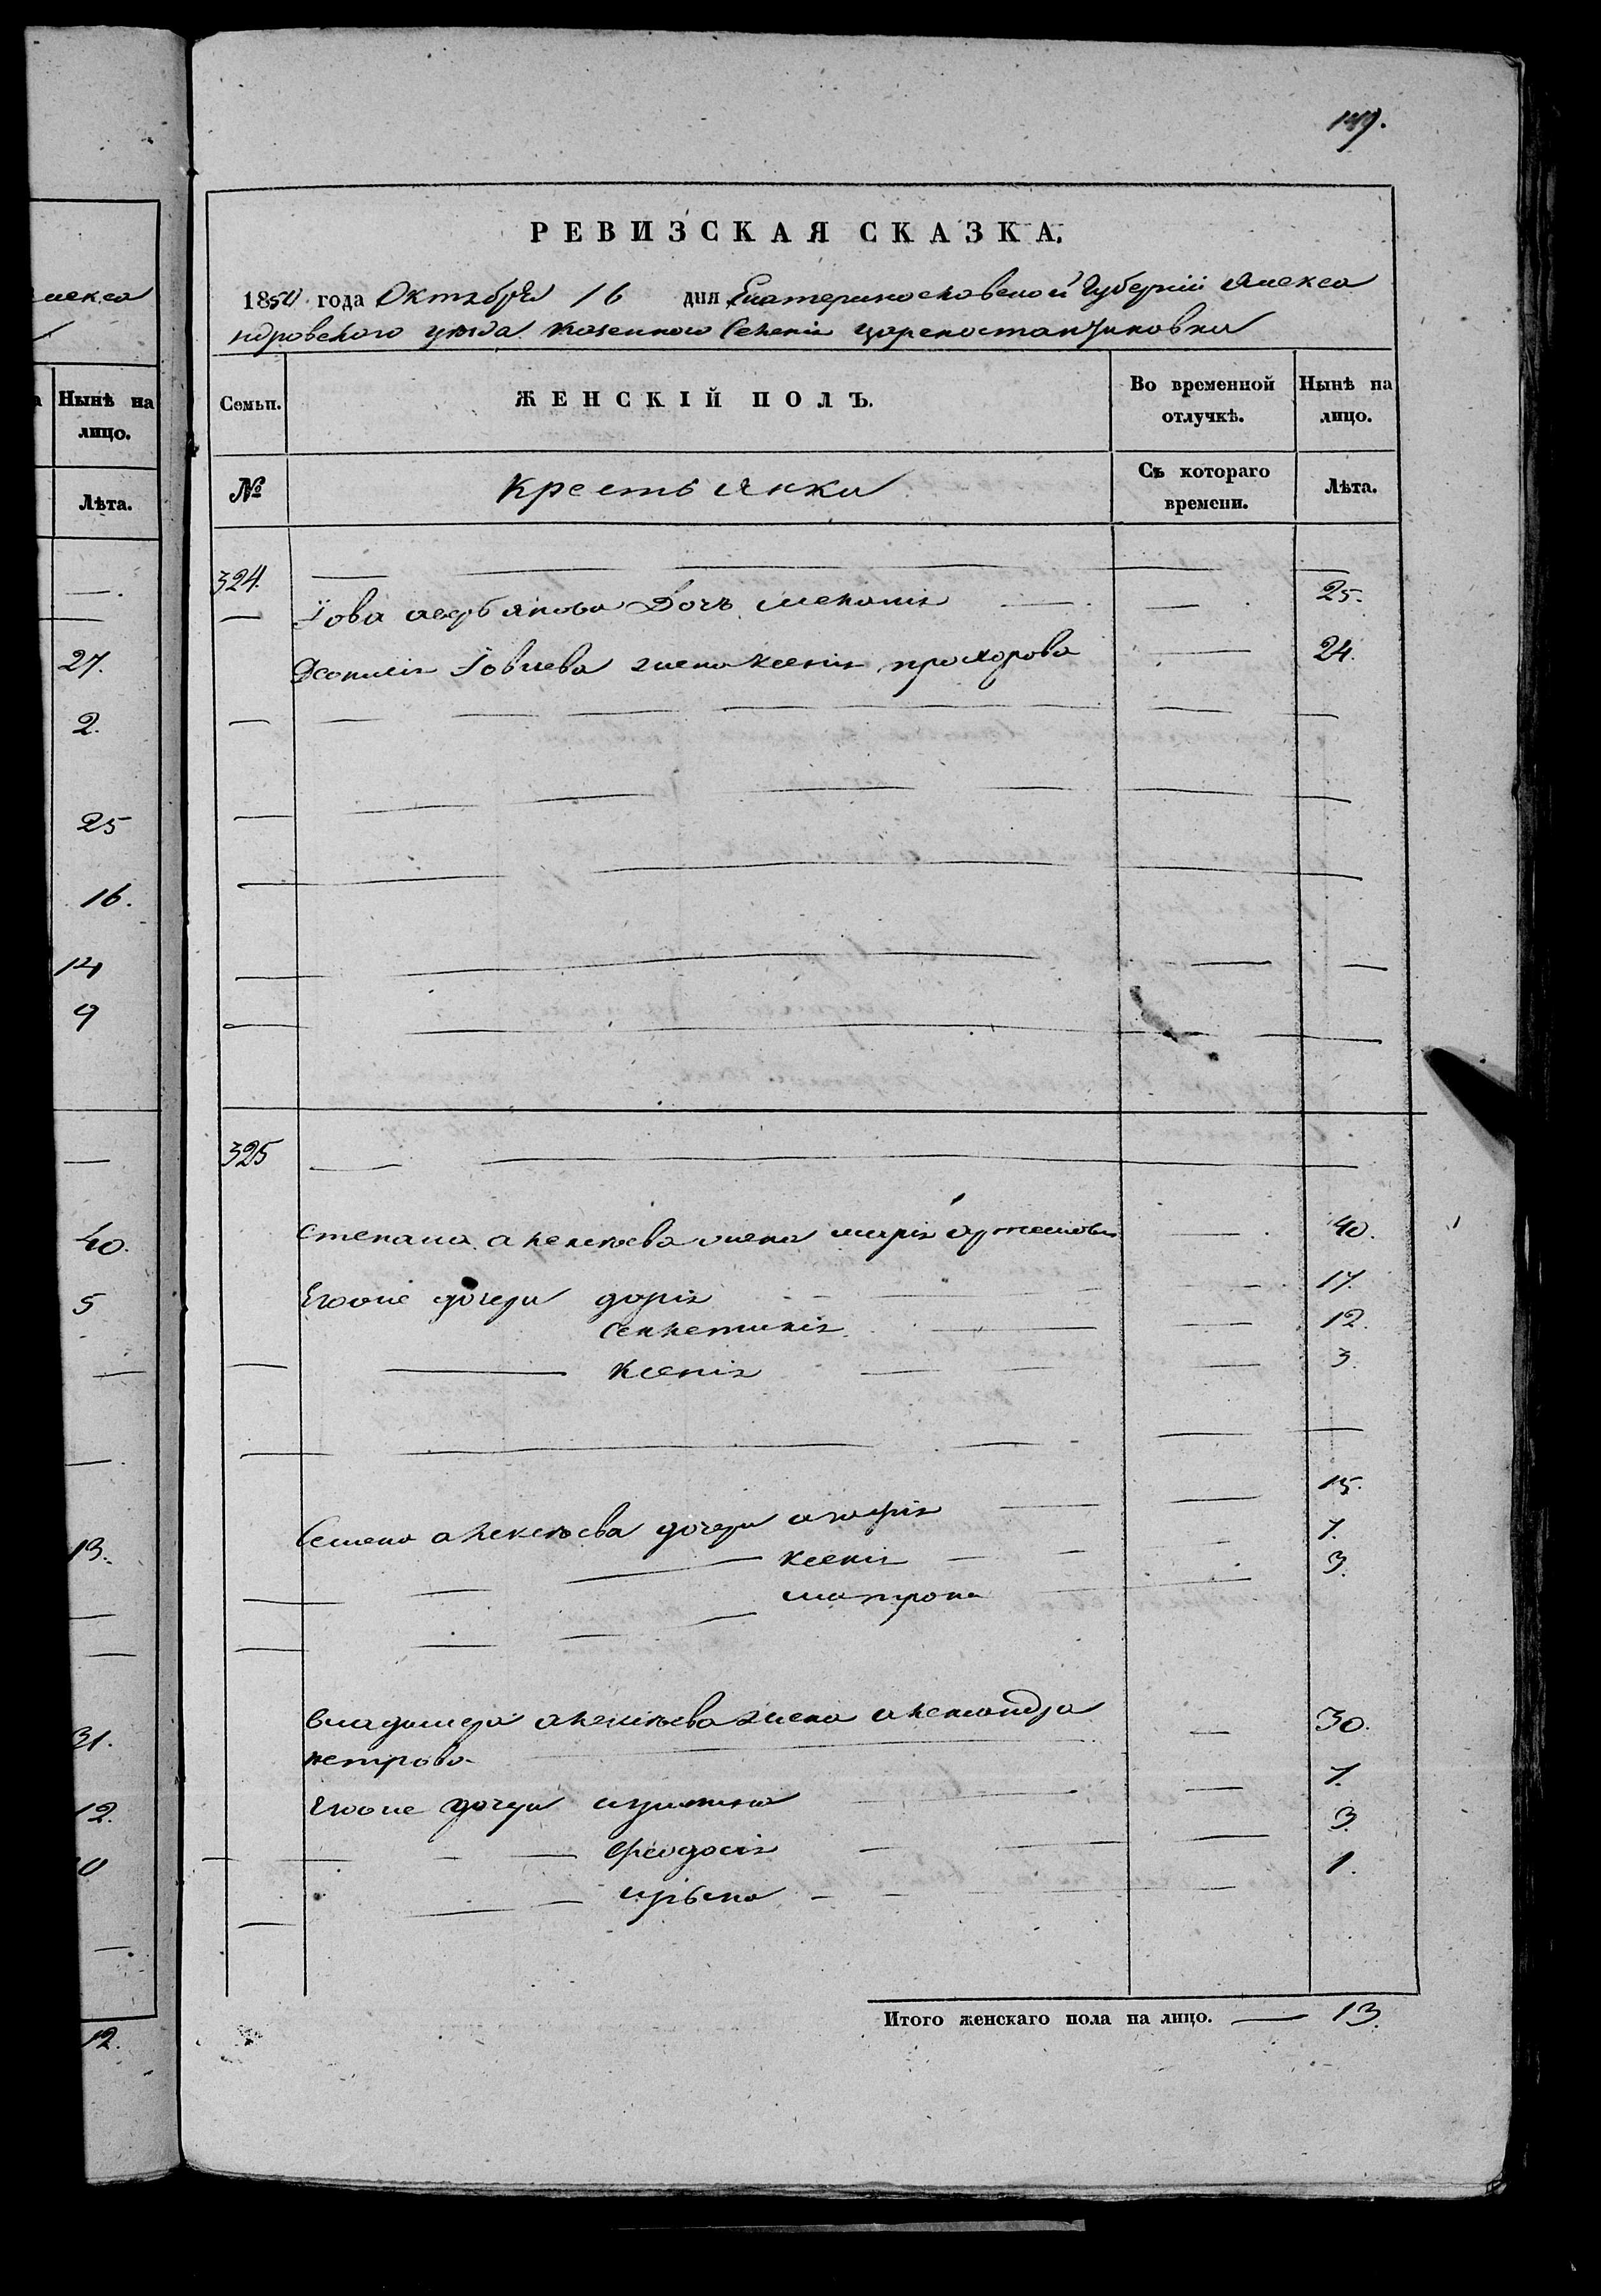 149.
РЕВИЗСКАЯ СКАЗКА.
1850 года Октября 16 дня Екатеринославской Губернии Алекса
ндровского уезда казенного Селения Цареконстантиновки
Семьи. ЖЕНСКІЙ ПОЛЪ. Во временной отлучкѣ. Нынѣ на лицо.
№ Крестьянки Съ котораго времени. Лѣта.
324.
Іова Дочь меланія 25.
Іовлева жена ксенія прохорова 24.
325
Степана алексѣева жена марія артемова 40.
Еговые дочери дарія 17.
Секлетикія 12.
Ксенія 3.
Семена алексѣева дочери 15.
ксенія 7.
матрона 3.
Владимера алексѣева жена александра 30.
петрова
Еговые дочери 7.
феодосія 3.
1.
Итого женскаго пола на лицо. 13.
лекса
Нынѣ на
лицо.
Лѣта.
27.
2.
25
16.
14
9
40.
5
13.
31.
12.
12.